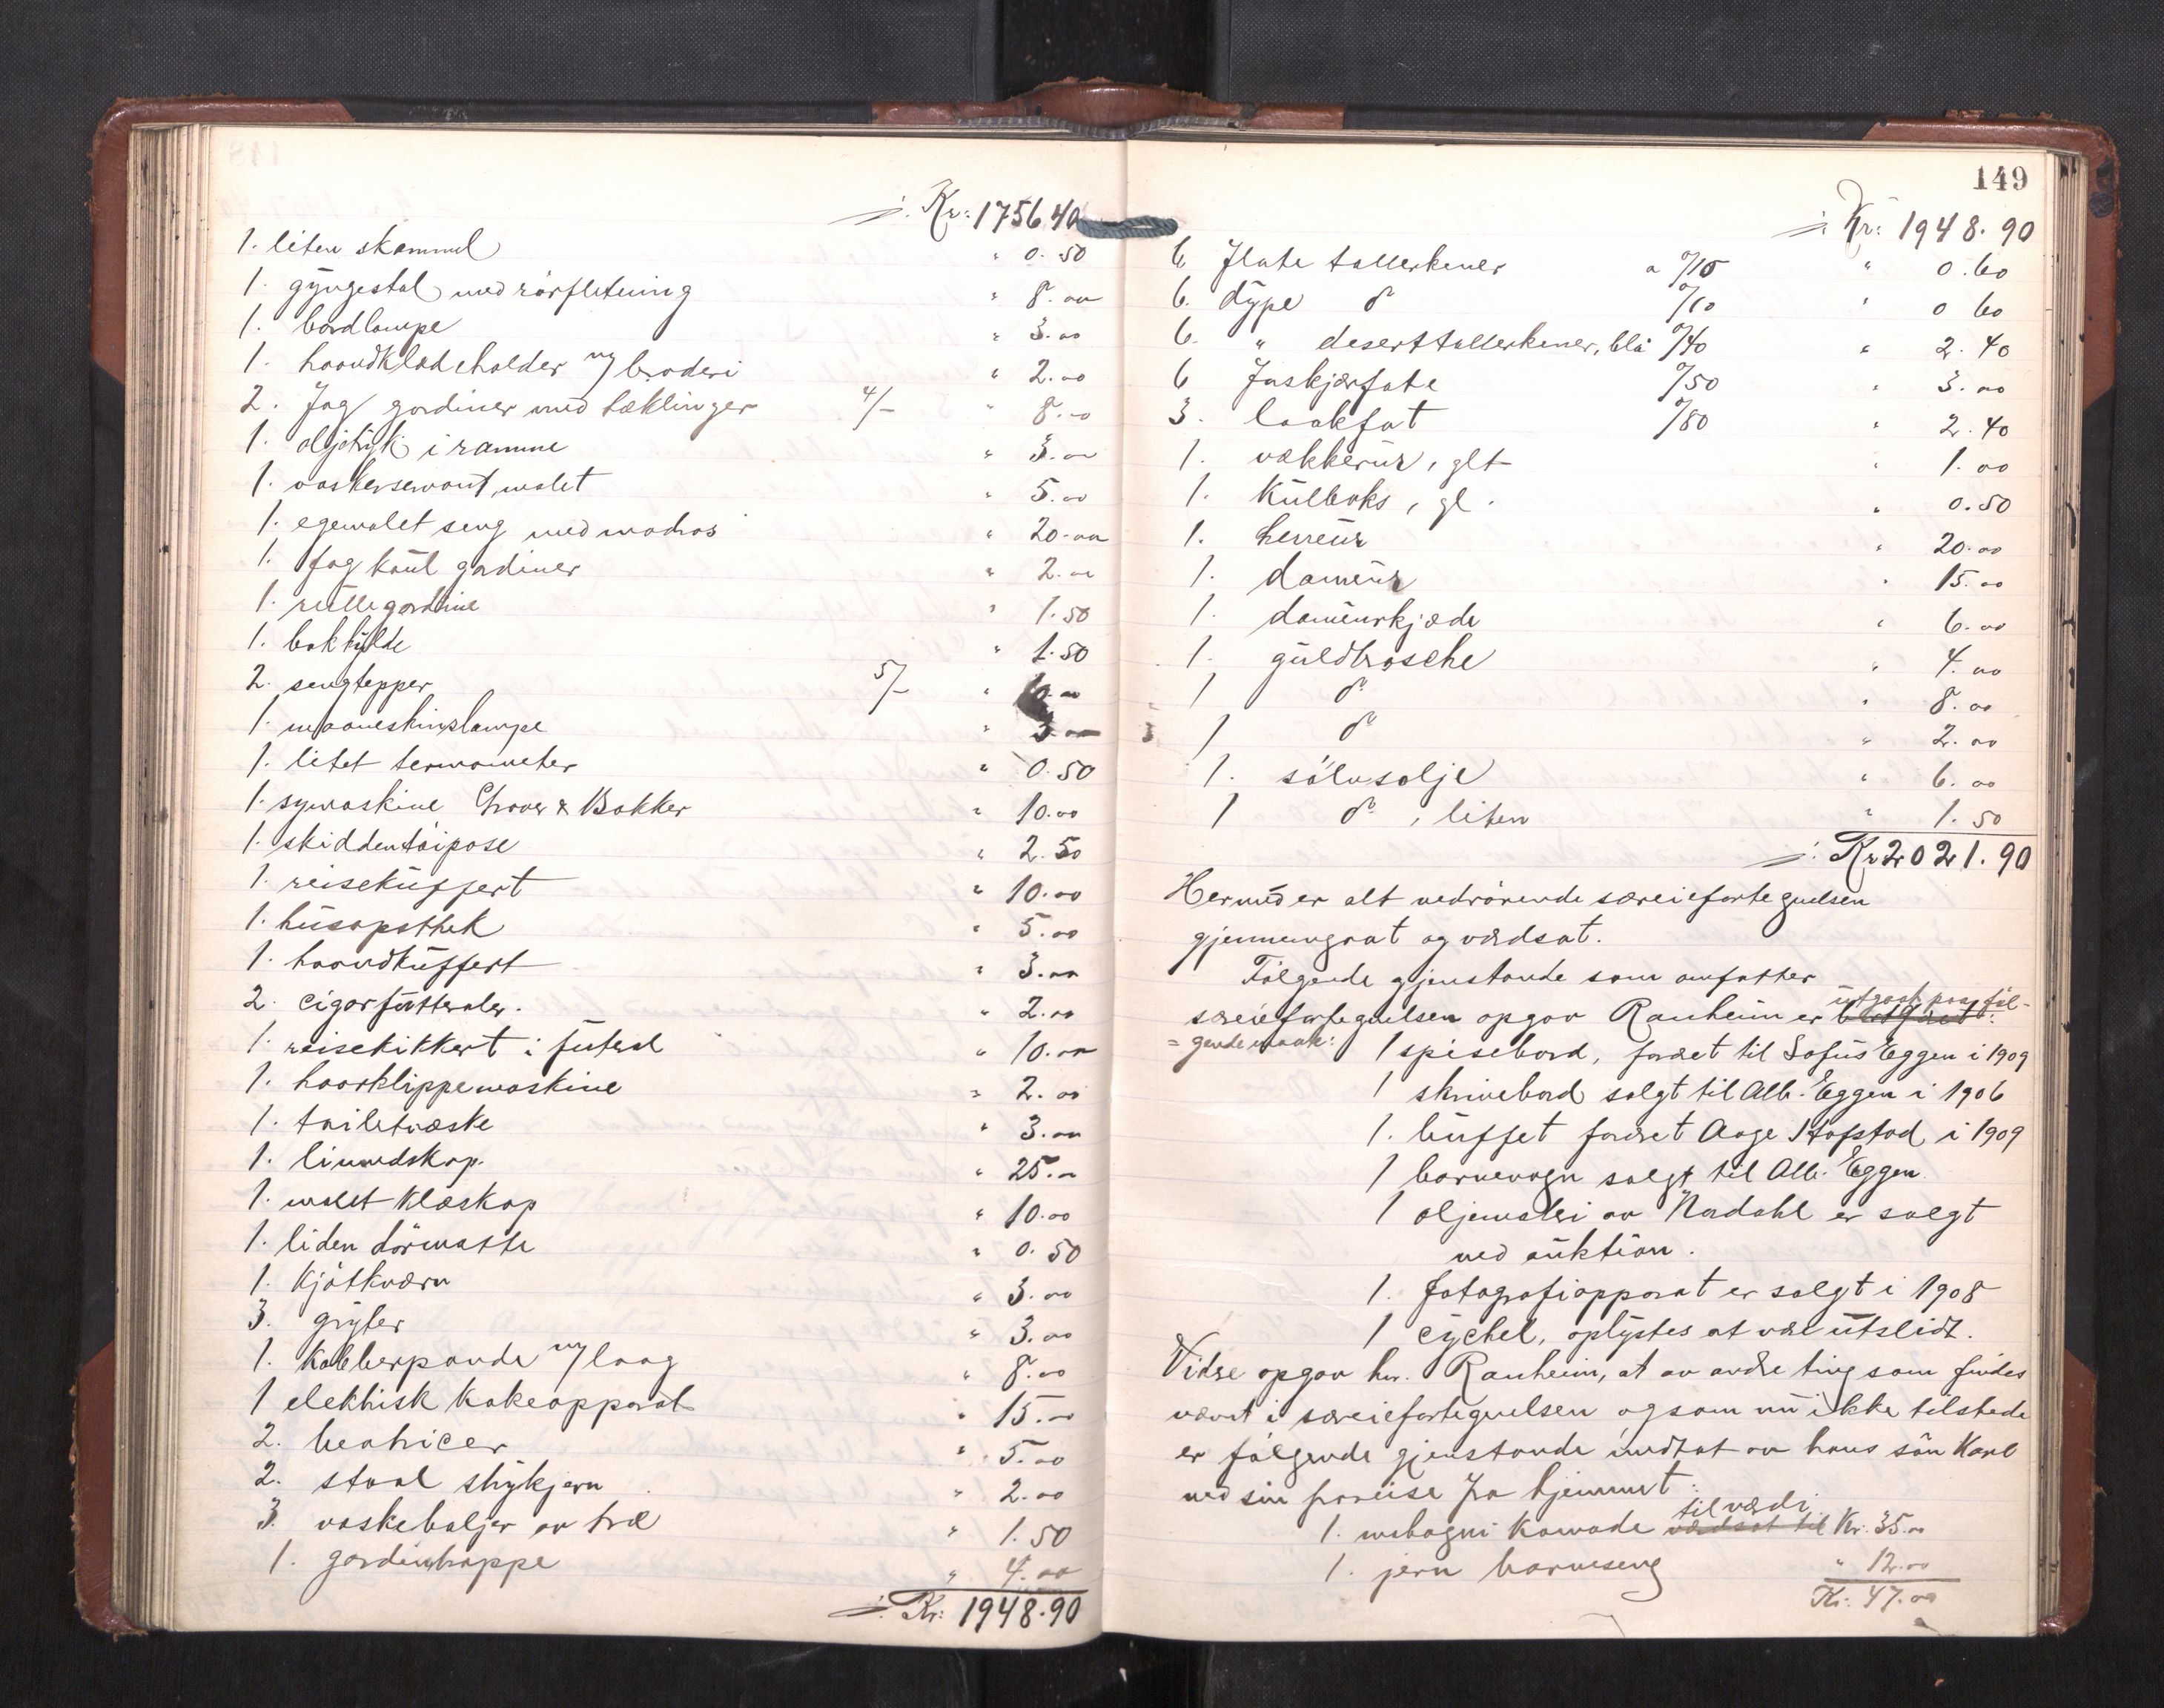 ÷ Kr: 1756 40
1. liten skammel " 0.50
1. gyngestol med rörfletning " 8.00
1. bordlampe " 3.00
1. haandklædeholder m/ broderi " 2.00
2. fag gardiner med tæklinger 4/- " 8.00
1. oljetryk i ramme " 3.00
1. vaskeservant, malet " 5.00
1. egemalet seng med madras " 20.00
1. fag gardiner " 2.00
1. rullegardine " 1.50
1. bokhylde " 1.50
2. sengtepper 5/- " 10.00
1. maaneskinslampe " 3.00
1. litet termometer " 0.50
1. symaskine Grover & Bakker " 10.00
1. skiddentöipose " 2.50
1. reisekuffert " 10.00
1. husapothek " 5.00
1. haandkuffert " 3.00
2. cigarfutteraler. " 2.00
1. reisekikkert i futeral " 10.00
1. haarklippemaskine " 2.00
1. toiletvæske " 3.00
1. linnedskap. " 25.00
1. malet klæskap " 10.00
1. liden dörmatte " 0.50
1. kjötkværn " 3.00
3. gryter " 3.00
1. kobberpande m/ laag " 8.00
1 elektrisk kokeapparat " 15.00
2. beatricer " 5.00
2. staal strykjern " 2.00
3. vaskebaljer av træ " 1.50
1. gardintrappe " 4.00
÷ Kr: 1948.90
149
÷ Kr: 1948.90
6 flate tallerkener a 0/10 " 0.60
6. dype do 0/10 " 0 60
6. " deserttallerkener, blå 0/40 " 2.40
6 0/50 " 3.00
3. laakfat 0/80 " 2.40
1. vækkerur, glt " 1.00
1. Kulboks, gl. " 0.50
1. herreur " 20.00
1. dameur " 15.00
1. dameurkjæde " 6.00
1. guldbrosche " 4.00
1 do " 8.00
1 do " 2.00
1. sölvsolje " 6.00
1 do, liten " 1.50
÷ Kr 2021.90
Hermed er alt vedrörende særeiefortegnelsen
gjennemgaat og værdsat.
Fölgende gjenstande som omfatter
særeiefortegnelsen opgav Ranheim er utgaat paa föl-
= gende maate: 1 spisebord, foræret til Sofus Eggen i 1909
1 skrivebord solgt til Alb. Eggen i 1906
1. buffet foræret Aage Hofstad i 1909
1 barnevogn solgt til Alb. Eggen
1 oljemaleri av Nardahl er solgt
ved auktion.
1. fotografiapparat er solgt i 1908
1 cyckel, oplystes at være utslidt.
Videre opgav hr. Ranheim, at av andre ting som findes
nævnt i særeiefortegnelsen og som nu ikke tilstede
er fölgende gjenstande indtat av hans sön Karl
ved sin fra hjemmet:
1. mahogni komode til værdi værdsat til Kr. 35.00
1. jern barneseng " 12.00
Kr. 47.00